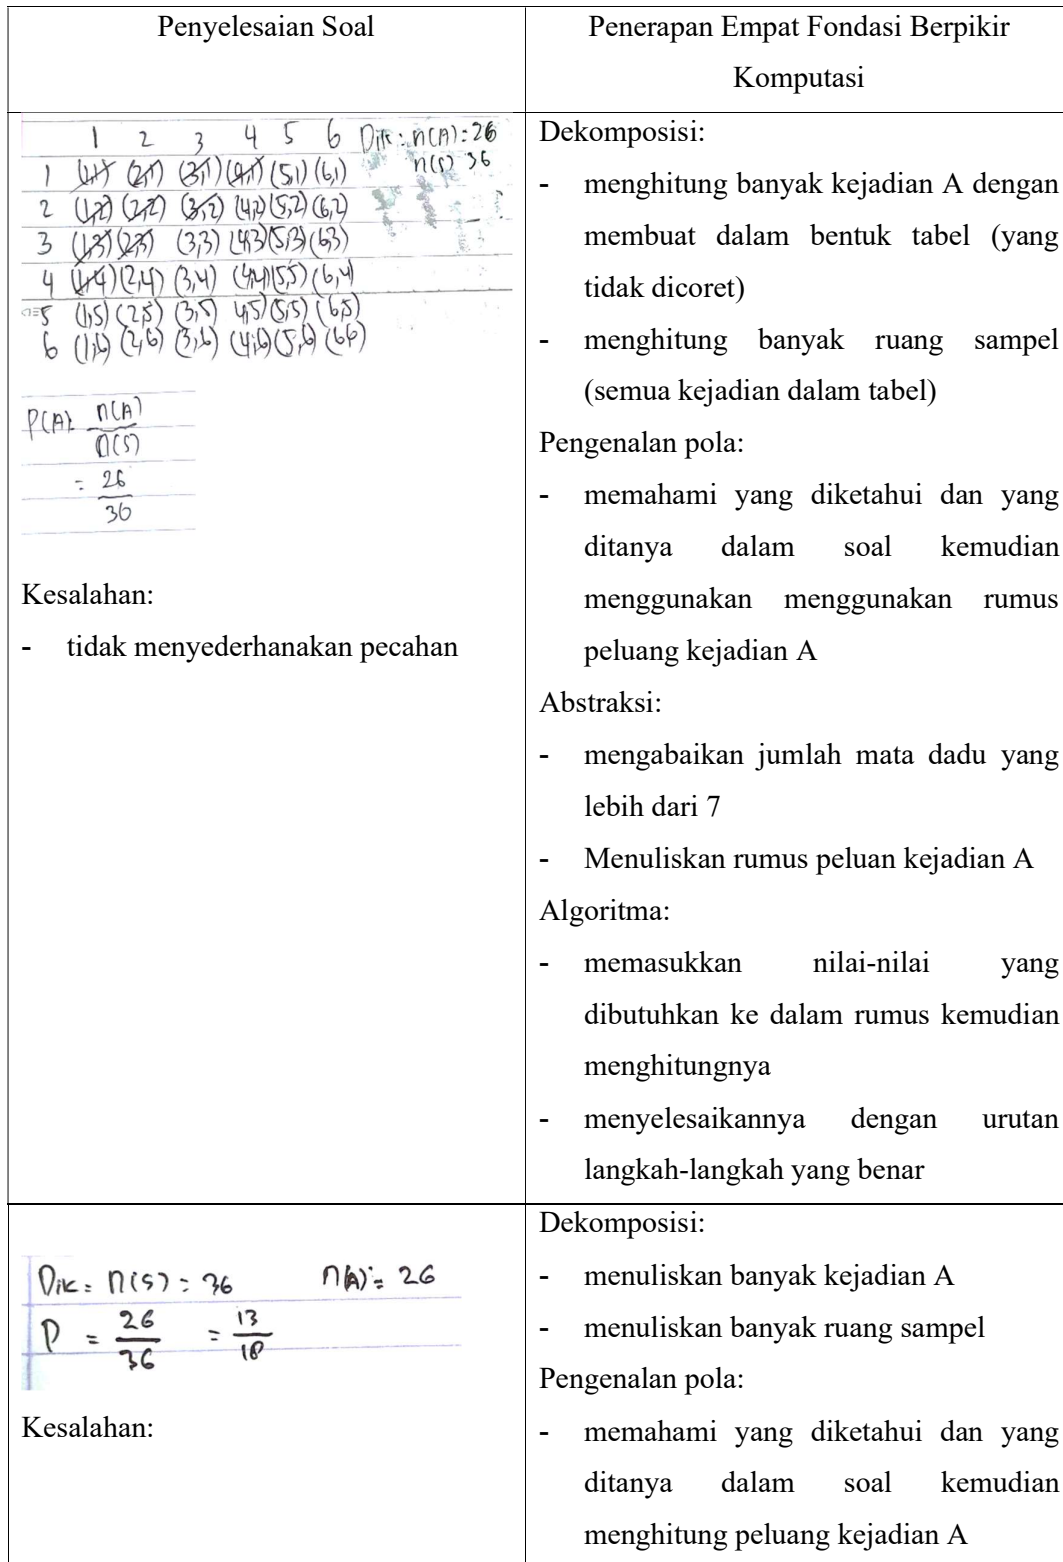 Penyelesaian Soal
Penerapan Empat Fondasi Berpikir
Komputasi
1 2 3 4 5 6 Dik: n(A): 26
n(s) 36
1 (1,1) (2,1) (3,1) (4,1) (5,1) (6,1)
2 (1,2) (2,2) (3,2) (4,2) (5,2) (6,2)
3 (1,3) (2,3) (3,3) (4,3) (5,3) (6,3)
4 (1,4) (2,4) (3,4) (4,4) (5,5) (6,4)
5 (1,5) (2,5) (3,5) 4,5) (5,5) (6,5)
6 (1,6) (2,6) (3,6) (4,6) (5,6) (6,6)
P(A): n(A)
n(s)
= 26
36
Kesalahan:
- tidak menyederhanakan pecahan
Dekomposisi:
- menghitung banyak kejadian A dengan
membuat dalam bentuk tabel (yang
tidak dicoret)
- menghitung banyak ruang sampel
(semua kejadian dalam tabel)
Pengenalan pola:
- memahami yang diketahui dan yang
ditanya dalam soal kemudian
menggunakan menggunakan rumus
peluang kejadian A
Abstraksi:
- mengabaikan jumlah mata dadu yang
lebih dari 7
- Menuliskan rumus peluan kejadian A
Algoritma:
- memasukkan nilai-nilai yang
dibutuhkan ke dalam rumus kemudian
menghitungnya
- menyelesaikannya dengan urutan
langkah-langkah yang benar
Dik = n(s) = 36 n(A) = 26
P = 26 = 13
36 18
Kesalahan:
Dekomposisi:
- menuliskan banyak kejadian A
- menuliskan banyak ruang sampel
Pengenalan pola:
- memahami yang diketahui dan yang
ditanya dalam soal kemudian
menghitung peluang kejadian A